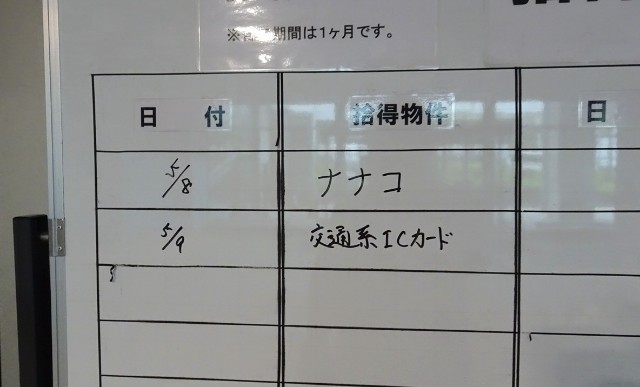 ※ 期間は1ヶ月です。
日 付 拾得物件 日
5/8 ナナコ
5/9 交通系ICカード